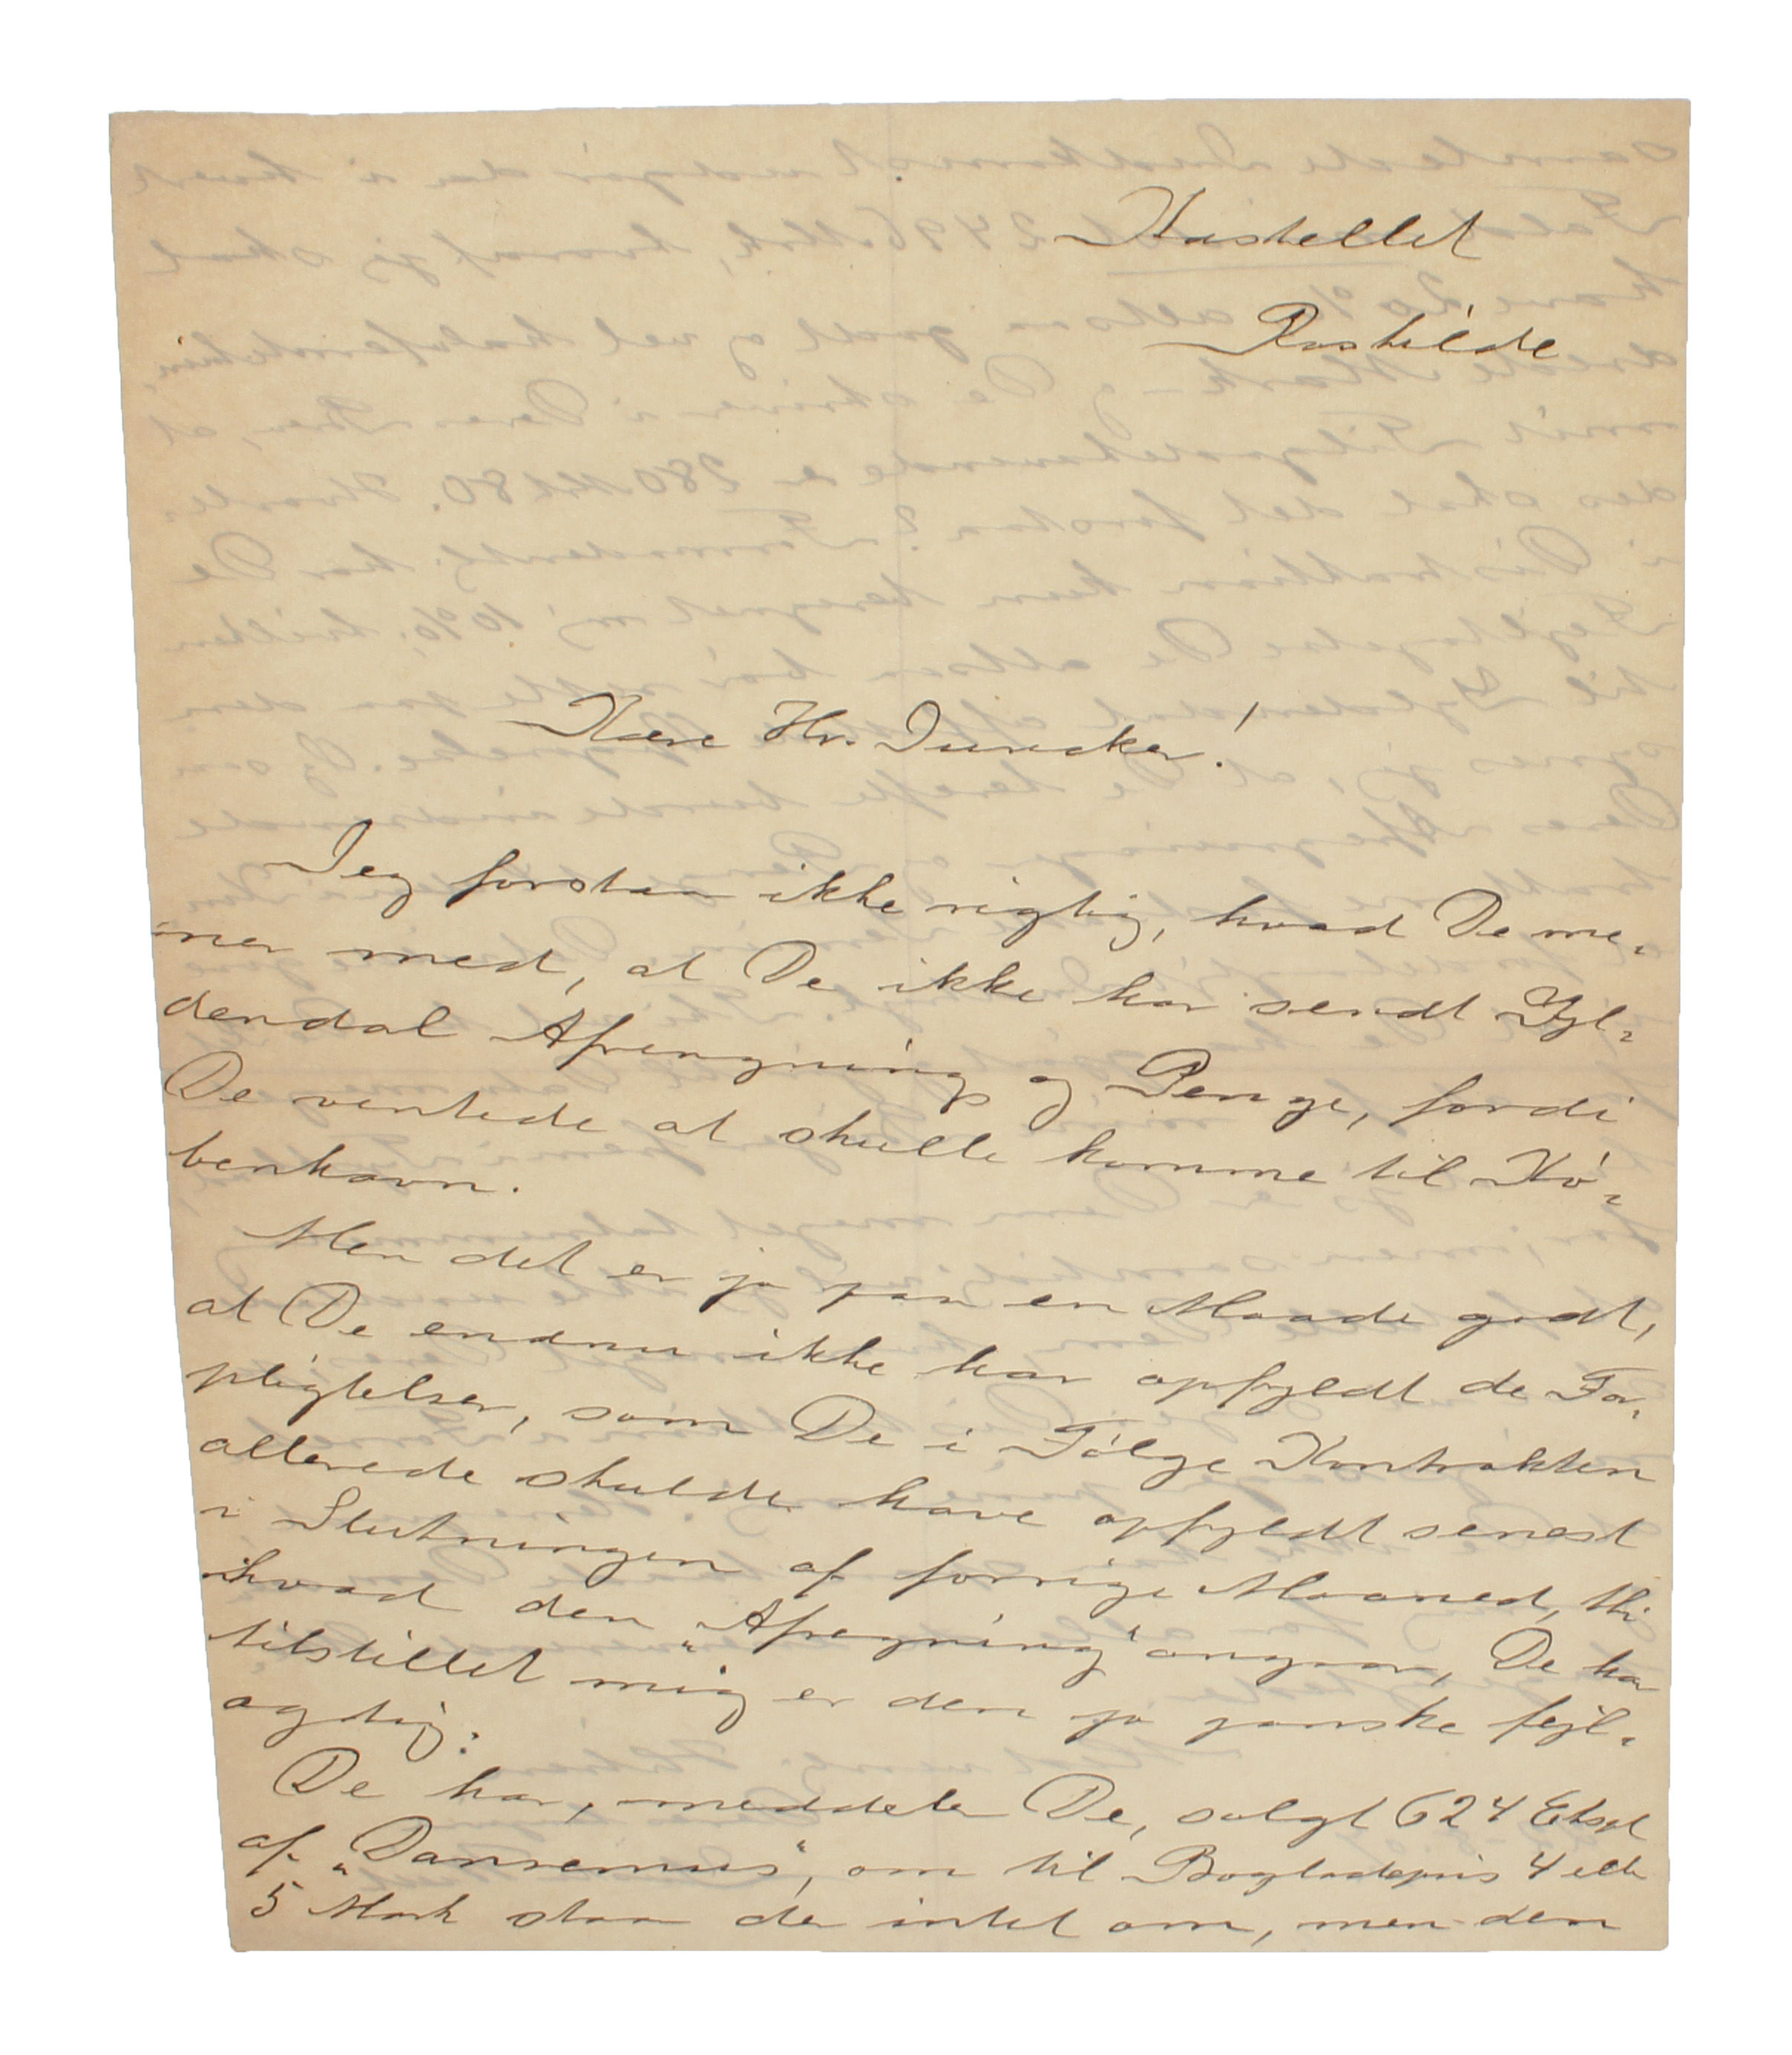 Kastellet
Roskilde
Kære Hr. Juncker!
Jeg forstaar ikke rigtig, hvad De me-
ner med, at De ikke har sendt Gyl-
dendal Afregning og Penge, fordi
De ventede at skulle komme til Kø-
benhavn.
Men det er jo paa en Maade godt,
at De endnu ikke har opfyldt de For-
pligtelser, som De i Følge Kontrakten
allerede skulde have opfyldt senest
i Slutningen af forrige Maaned, thi
hvad den "Afregning" angaar, De har
tilstillet mig er den jo ganske fejl-
agtig:
De har, meddeler De, solgt 624 Ekspl
af "Dansemus", om til Bogladepris 4 eller
5 Mark staar der intet om, men den